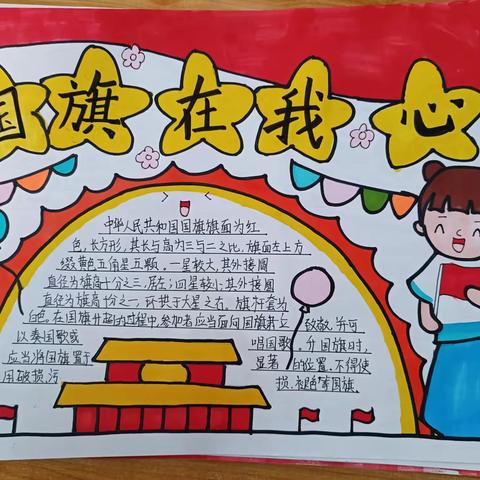 国旗在我心
中华人民共和国国旗旗面为红
色,长方形,其长与高为三与二之比,旗面左上方
缀黄色五角星五颗。一星较大,其外接圆
直径为旗高十分之三,居左;四星较小,其外接圆
直径为旗高十分之一,环拱于大星之右。旗杆套为
白色。在国旗升起的过程中,参加者应当面向国旗肃立
致敬,并可
以奏国歌或
唱国歌。升国旗时,
应当将国旗置于
显著的位置,不得使
用破损、污
损、褪色等国旗。